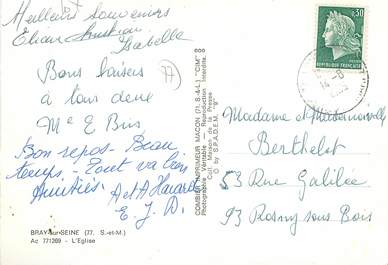 Meilleurs souvenirs
Eliane Christian
Isabelle
Bons baisers
à tous deux
Me E Bus
Bon repos - Beau
temps - Tout va bien
Amitiés A et A
E. J. D.
BRAY-sur-SEINE (77. S.-et-M.)
Ac 771269 - L'Eglise
COMBIER IMPRIMEUR MACON (71. S.-&-L.) "CIM"
Photographie Véritable - Reproduction Interdite.
© by S.P.A.D.E.M.
0,30
REPUBLIQUE FRANÇAISE
14-8
Madame et Mademoiselle
Berthelot
53 Rue Galilée
93 Rosny sous Bois